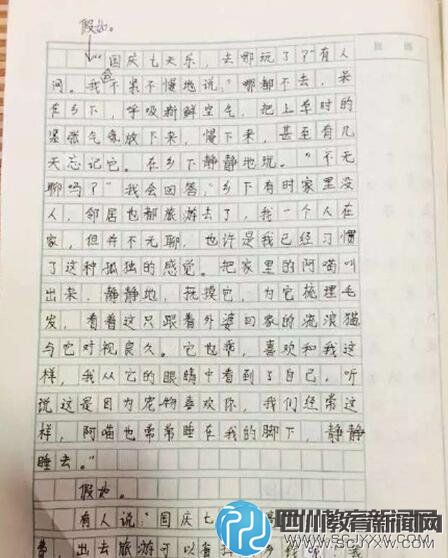 假如。
"国庆七天乐，去哪玩了？"有人
问。我会不紧不慢地说，"哪都不去，呆
在乡下，呼吸新鲜空气，把上学时的
紧张气氛放下来，慢下来，甚至有几
天忘记它。在乡下静静地玩。""不无
聊吗？"我会回答，"乡下有时家里没
人，邻居也都旅游去了，我一个人在
家，但并不无聊，也许是我已经习惯
了这种孤独的感觉。把家里的阿喵叫
出来，静静地，抚摸它，为它梳理毛
发，看着这只跟着外婆回家的流浪猫
与它对视良久。它也乖，喜欢和我这
样，我从它的眼睛中看到了自己，听
说这是因为宠物喜欢你，我们经常这
样，阿喵也常常睡在我的脚下，静静
睡去。"
假如。
有人说，"国庆七
费，出去旅游可以看
四川教育新闻网
WWW.SCJYXW.COM